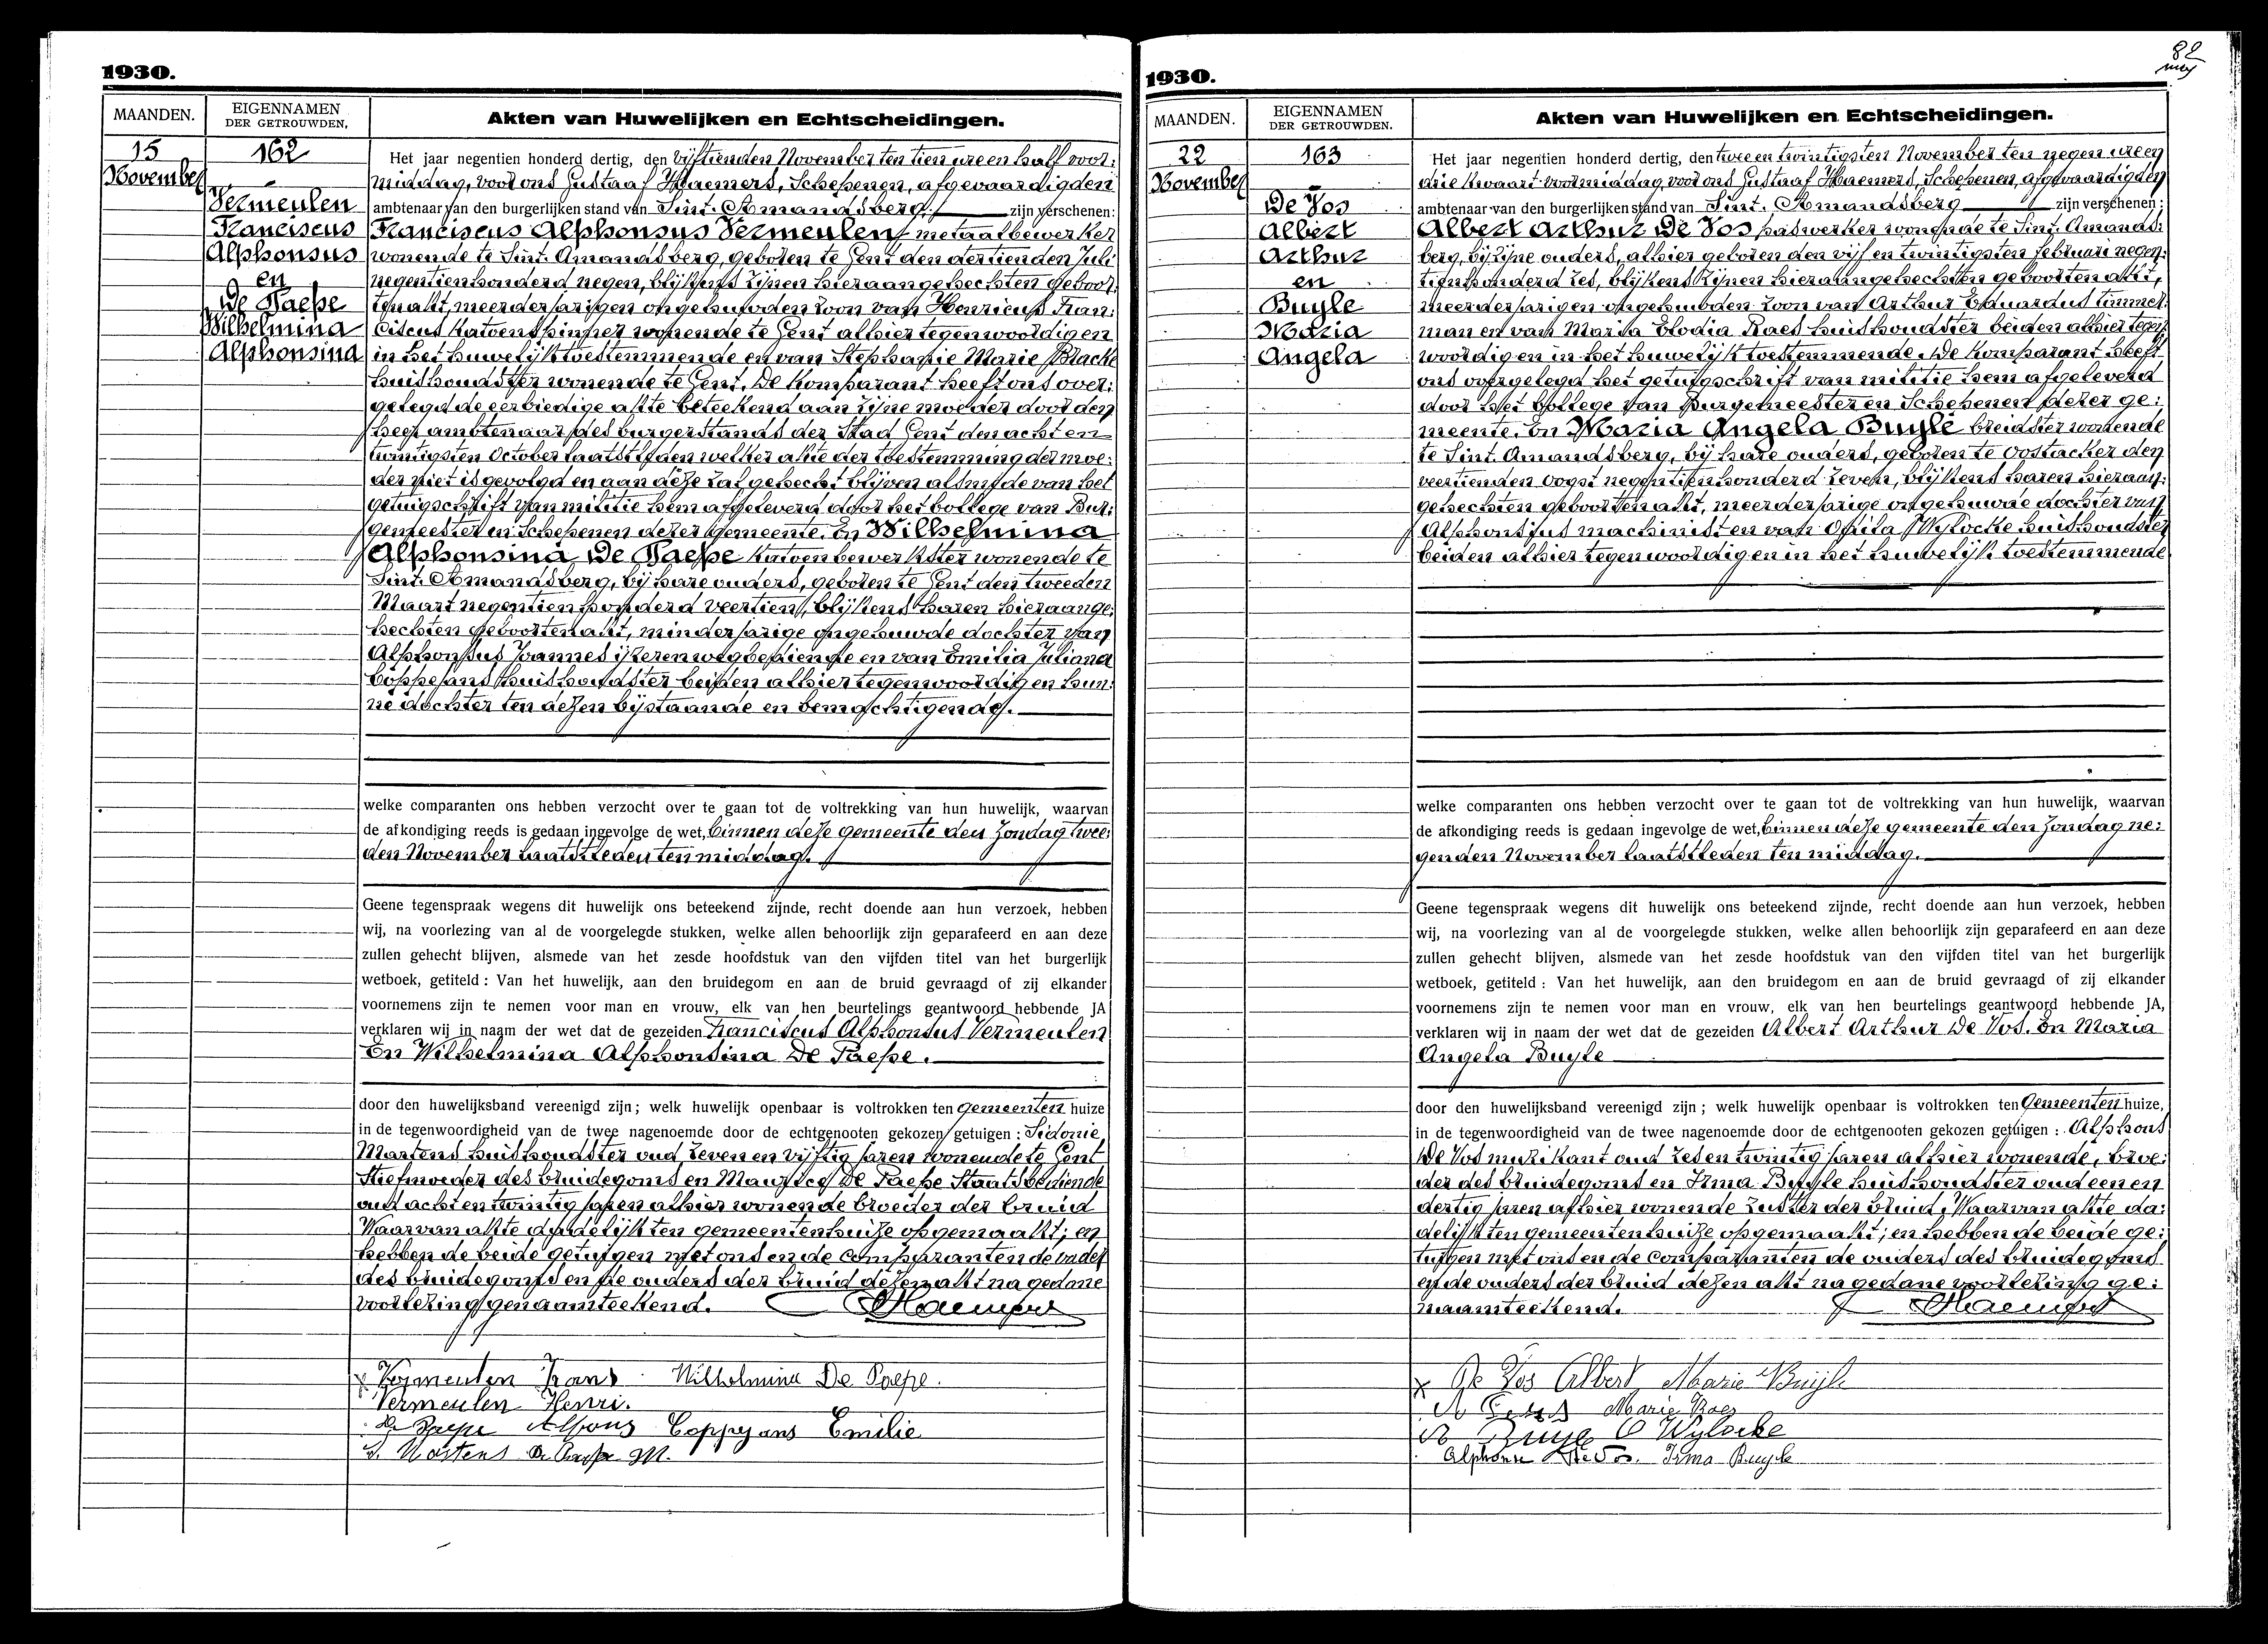 1930.
MAANDEN.
EIGENNAMEN
DER GETROUWDEN.
Akten van Huwelijken en Echtscheidingen.
15
November
162
Vermeulen
Franciscus
Alphonsus
en
De Paepe
Wilhelmina
Alphonsina
Het jaar negentien honderd dertig, den vijftienden November ten tien ure en half voor:
middag, voor ons Gustaaf Haemers, Schepenen, afgevaardigden
ambtenaar van den burgerlijken stand van Sint-Amandsberg, zijn verschenen:
Franciscus Alphonsus Vermeulen, metaalbewerker
wonende te Sint-Amandsberg, geboren te Gent den dertienden Juli
negentienhonderd negen, blijkens zijnen hieraangehechten geboor:
tenakt, meerderjarigen ongehuwden zoon van Henricus Fran:
ciscus katoenspinner wonende te Gent alhier tegenwoordig en
in het huwelijk toestemmende en van Stephanie Marie Blacke
huishoudster wonende te Gent. De komparant heeft ons over:
gelegd de eerbiedige akte beteekend aan zijne moeder door den
heer ambtenaar des burgerstands der Stad Gent den acht en
twintigsten October laatstleden welker akte der toestemming der moe:
der niet is gevolgd en aan deze zal gehecht blijven alsmede van het
getuigschrift van militie hem afgeleverd door het College van Bur:
gemeester en Schepenen dezer gemeente. En Wilhelmina
Alphonsina De Paepe katoenbewerkster wonende te
Sint-Amandsberg, bij hare ouders, geboren te Gent den tweeden
Maart negentienhonderd veertien, blijkens haren hieraange:
hechten geboortenakt, minderjarige ongehuwde dochter van
Alphonsus Joannes ijzerenwegbediende en van Emilia Juliana
Coppejans huishoudster beiden alhier tegenwoordig en hun:
ne dochter ten dezen bijstaande en bemachtigende.
welke comparanten ons hebben verzocht over te gaan tot de voltrekking van hun huwelijk, waarvan
de afkondiging reeds is gedaan ingevolge de wet, binnen deze gemeente den Zondag twee:
den November laatstleden ten middag.
Geene tegenspraak wegens dit huwelijk ons beteekend zijnde, recht doende aan hun verzoek, hebben
wij, na voorlezing van al de voorgelegde stukken, welke allen behoorlijk zijn geparafeerd en aan deze
zullen gehecht blijven, alsmede van het zesde hoofdstuk van den vijfden titel van het burgerlijk
wetboek, getiteld : Van het huwelijk, aan den bruidegom en aan de bruid gevraagd of zij elkander
voornemens zijn te nemen voor man en vrouw, elk van hen beurtelings geantwoord hebbende JA
verklaren wij in naam der wet dat de gezeiden Franciscus Alphonsus Vermeulen
En Wilhelmina Alphonsina De Paepe.
door den huwelijksband vereenigd zijn; welk huwelijk openbaar is voltrokken ten Gemeenten huize
in de tegenwoordigheid van de twee nagenoemde door de echtgenooten gekozen getuigen : Sidonie
Martens huishoudster oud zeven en vijftig jaren wonende te Gent
Stiefmoeder des bruidegoms en Maurice De Paepe Staatsbediende
oud acht en twintig jaren alhier wonende broeder der bruid
Waarvan akte dadelijk ten gemeentenhuize opgemaakt; en
hebben de beide getuigen met ons en de Comparanten de vader
des bruidegoms en de ouders der bruid dezen akt na gedane
voorlezing genaamteekend. Haemers
Vermeulen Frans Wilhelmina De Paepe.
Vermeulen Henri.
De Paepe Alfons Coppejans Emilie
S. Martens De Paepe M.
1930.
82
MAANDEN.
EIGENNAMEN
DER GETROUWDEN.
Akten van Huwelijken en Echtscheidingen.
22
November
163
De Vos
Albert
Arthur
en
Buyle
Maria
Angela
Het jaar negentien honderd dertig, den twee en twintigsten November ten negen ure en
drie kwaart voormiddag, voor ons Gustaaf Haemers, Schepenen, afgevaardigden
ambtenaar van den burgerlijken stand van Sint-Amandsberg zijn verschenen:
Albert Arthur De Vos paswerker wonende te Sint-Amands:
berg, bij zijne ouders, alhier geboren den vijf en twintigsten februari negen:
tienhonderd zes, blijkens zijnen hieraangehechten geboortenakt,
meerderjarigen ongehuwden zoon van Arthur Eduardus timmer:
man en van Maria Elodia Raes huishoudster beiden alhier tegen:
woordig en in het huwelijk toestemmende. De komparant heeft
ons overgelegd het getuigschrift van militie hem afgeleverd
door het College van Burgemeester en Schepenen dezer ge:
meente. En Maria Angela Buyle breidster wonende
te Sint-Amandsberg, bij hare ouders, geboren te Oostacker den
veertienden Oogst negentienhonderd zeven, blijkens haren hieraan:
gehechten geboortenakt, meerderjarige ongehuwde dochter van
Alphonsius machinist en van Ofila Wylocke huishoudster
beiden alhier tegenwoordig en in het huwelijk toestemmende
welke comparanten ons hebben verzocht over te gaan tot de voltrekking van hun huwelijk, waarvan
de afkondiging reeds is gedaan ingevolge de wet, binnen deze gemeente den Zondag ne:
genden November laatstleden ten middag.
Geene tegenspraak wegens dit huwelijk ons beteekend zijnde, recht doende aan hun verzoek, hebben
wij, na voorlezing van al de voorgelegde stukken, welke allen behoorlijk zijn geparafeerd en aan deze
zullen gehecht blijven, alsmede van het zesde hoofdstuk van den vijfden titel van het burgerlijk
wetboek, getiteld : Van het huwelijk, aan den bruidegom en aan de bruid gevraagd of zij elkander
voornemens zijn te nemen voor man en vrouw, elk van hen beurtelings geantwoord hebbende JA,
verklaren wij in naam der wet dat de gezeiden Albert Arthur De Vos. En Maria
Angela Buyle
door den huwelijksband vereenigd zijn; welk huwelijk openbaar is voltrokken ten Gemeenten huize,
in de tegenwoordigheid van de twee nagenoemde door de echtgenooten gekozen getuigen : Alphons
De Vos muzikant oud zes en twintig jaren alhier wonende, broe:
der des bruidegoms en Irma Buyle huishoudster oud een en
dertig jaren alhier wonende zuster der bruid. Waarvan akte da:
delijk ten gemeentenhuize opgemaakt; en hebben de beide ge:
tuigen met ons en de Comparanten de ouders des bruidegoms
en de ouders der bruid dezen akt na gedane voorlezing ge:
naamteekend. Haemers
De Vos Albert Marie Buyle
Marie Raes
Buyle O Wylocke
Alphons De Vos. Irma Buyle